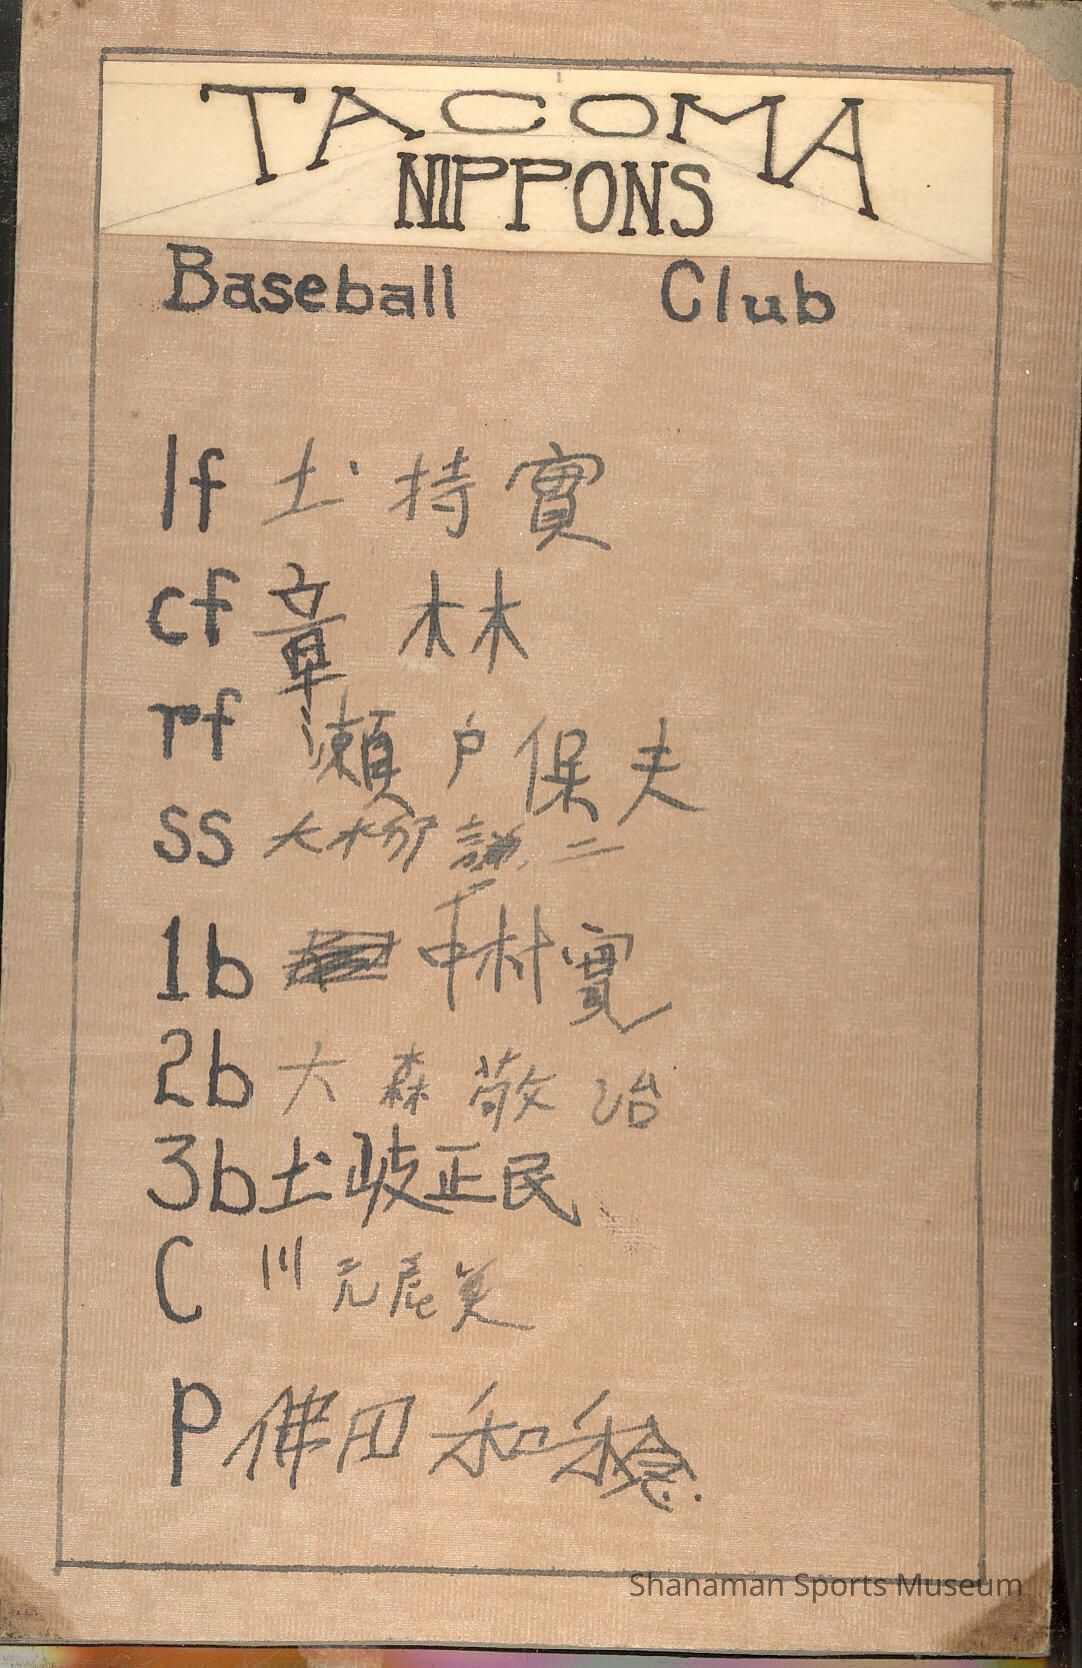 TACOMA
NIPPONS
Baseball Club
lf 土持實
cf 章 林
rf 瀬戸保夫
ss 大柳謙二
1b 中村實
2b 大森敬治
3b 土岐正民
C 川元 美
P 佛田和
Shanaman Sports Museum